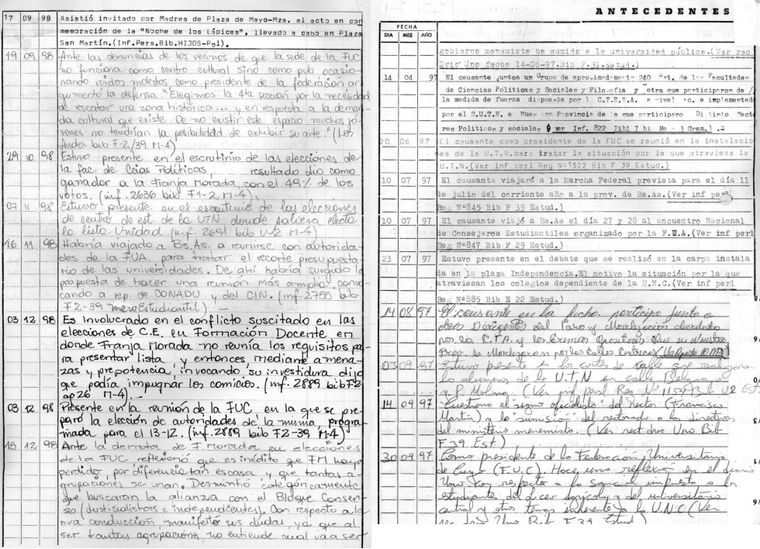 17 09 98 Asistió invitado por Madres de Plaza de Mayo-Mza. al acto en con
memoración de la "Noche de los Lápices", llevado a cabo en Plaza
San Martín.(Inf.Pers.Bib.HIJOS-Pol).
19 09 98 Ante las denuncias de los vecinos de que la sede de la FUC
no funciona como centro cultural sino como pub ocasio
nando ruidos molestos, como presidente de la federación ar
gumento la defensa "Elegimos la 4ta sección por la necesidad
de rescatar una zona histórica... y en respuesta a la deman
da cultural que existe. De no existir este espacio muchos jo
venes no tendrían la posibilidad de exhibir su arte." (Los
Andes bib F-2/39 M-4)
29 10 98 Estuvo presente en el escrutinio de las elecciones de
la fac. de Cias Políticas, resultado dio como
ganador a la Franja Morada, con el 49% de los
votos. (inf. 2636 bib F1-2, M-4).
03 11 98 Estuvo presente en el escrutinio de las elecciones
de centro de est. de la UTN donde saliera electa
la lista Unidad (inf. 2651 bib U-2 M-4)
16 11 98 Habría viajado a Bs.As. a reunirse con autorida
des de la FUA, para tratar el recorte presupuesta
rio de las universidades. De ahí habría surgido la
propuesta de hacer una reunión más amplia, convo
cando a rep. de CONADU y del CIN. (inf. 2755 bib
F2-39 mesa Estudiantil)
03 12 98 Es involucrado en el conflicto suscitado en las
elecciones de C.E. en Formación Docente en
donde Franja Morada no reunía los requisitos pa
ra presentar lista y entonces, mediante amena
zas y prepotencia, invocando su investidura dijo
que podía impugnar los comicios. (inf. 2889 bib F2-
ap 26 M-4).
03 12 98 Presente en la reunión de la FUC en la que se pre
paró la elección de autoridades de la misma, progra
mada para el 13-12. (inf. 2889 bib F2-39 M-4)
15 12 98 Ante la derrota de F. Morada en elecciones
de la FUC reflexionó que es inédito que FM haya
perdido por diferencia tan escasa y que tantas a
grupaciones se unan. Desmintió categóricamente
que buscaran la alianza con el Bloque Consen
so (Justicialistas e independientes). Con respecto a la
nva conducción manifestó sus dudas, ya que al
ser tantas agrupaciones no entiende cual va a ser
ANTECEDENTES
FECHA
DIA MES AÑO
gobierno menemista ha sumido a la universidad pública.(Ver rec
Uno fecha 14-06-97.Bib F.39.Estud.)
14 04 97 El causante juntos a un grupo de aproximadament 240 est, de las Facultades
de Ciencias Politicas y Sociales y Filosofía y Letra que participaron de
la medida de fuerza dispuesta por la C.T.E.R.A. a nivel e implementada
por el S.U.T.E. Provincia de la que participaron Distinto Sectores
Politicos y sociales ver Inf. 822 Bibl
20 06 97 El causante como presidente de la FUC se reunió en la instalacio
nes de la U.T.N.para tratar la situación por la que atraviesa la
U.T.N.(Ver inf perl Reg Nº1522 Bib F 39 Estud.)
10 07 97 El causante viajó a la Marcha Federal prevista para el día 11
de julio del corriente año a la prov. de Bs.As.(Ver inf perl
Reg Nº845 Bib F 39 Estud.)
10 07 97 El causante viajó a Bs.As el día 27 y 28 al encuentro Nacional
de Consejeros Estudiantiles organizado por la F.U.A.(Ver inf perl
Reg Nº847 Bib F 29 Estud.)
23 07 97 Estuvo presente en el debate que se realizó en la carpa instala
da en la plaza Independencia.El motivo la situación por la que
atraviesan los colegios dependiente de la U.N.C.(Ver inf perl
Reg Nº885 Bib E 22 Estud.)
14 08 97 El causante en la fecha, participo junto a
otros Dirigentes del Paro y Movilización
por la C.T.A. y los Gremios
03 09 97 Estuvo presente en los cortes de calle que realizaron
los alumnos de la U.T.N en calle
P. Molina (Ver inf perl Reg Nº Bib U2 Est
14 09 97 Cuestiona el signo oficialista del rector (Francisco
Martin) y la "sumisión" del rectorado a la directivas
del ministerio menemista (Ver rect dire Uno Bib
F 39 Est)
30 09 97 Como presidente de la Federación Universitaria
de Cuyo (F.U.C) Hace una reflexión en el diario
Uno hoy respecto a la
estudiantes
central y otros temas inherente a la U.N.C (Ver
Uno Bib F 39 Estud)